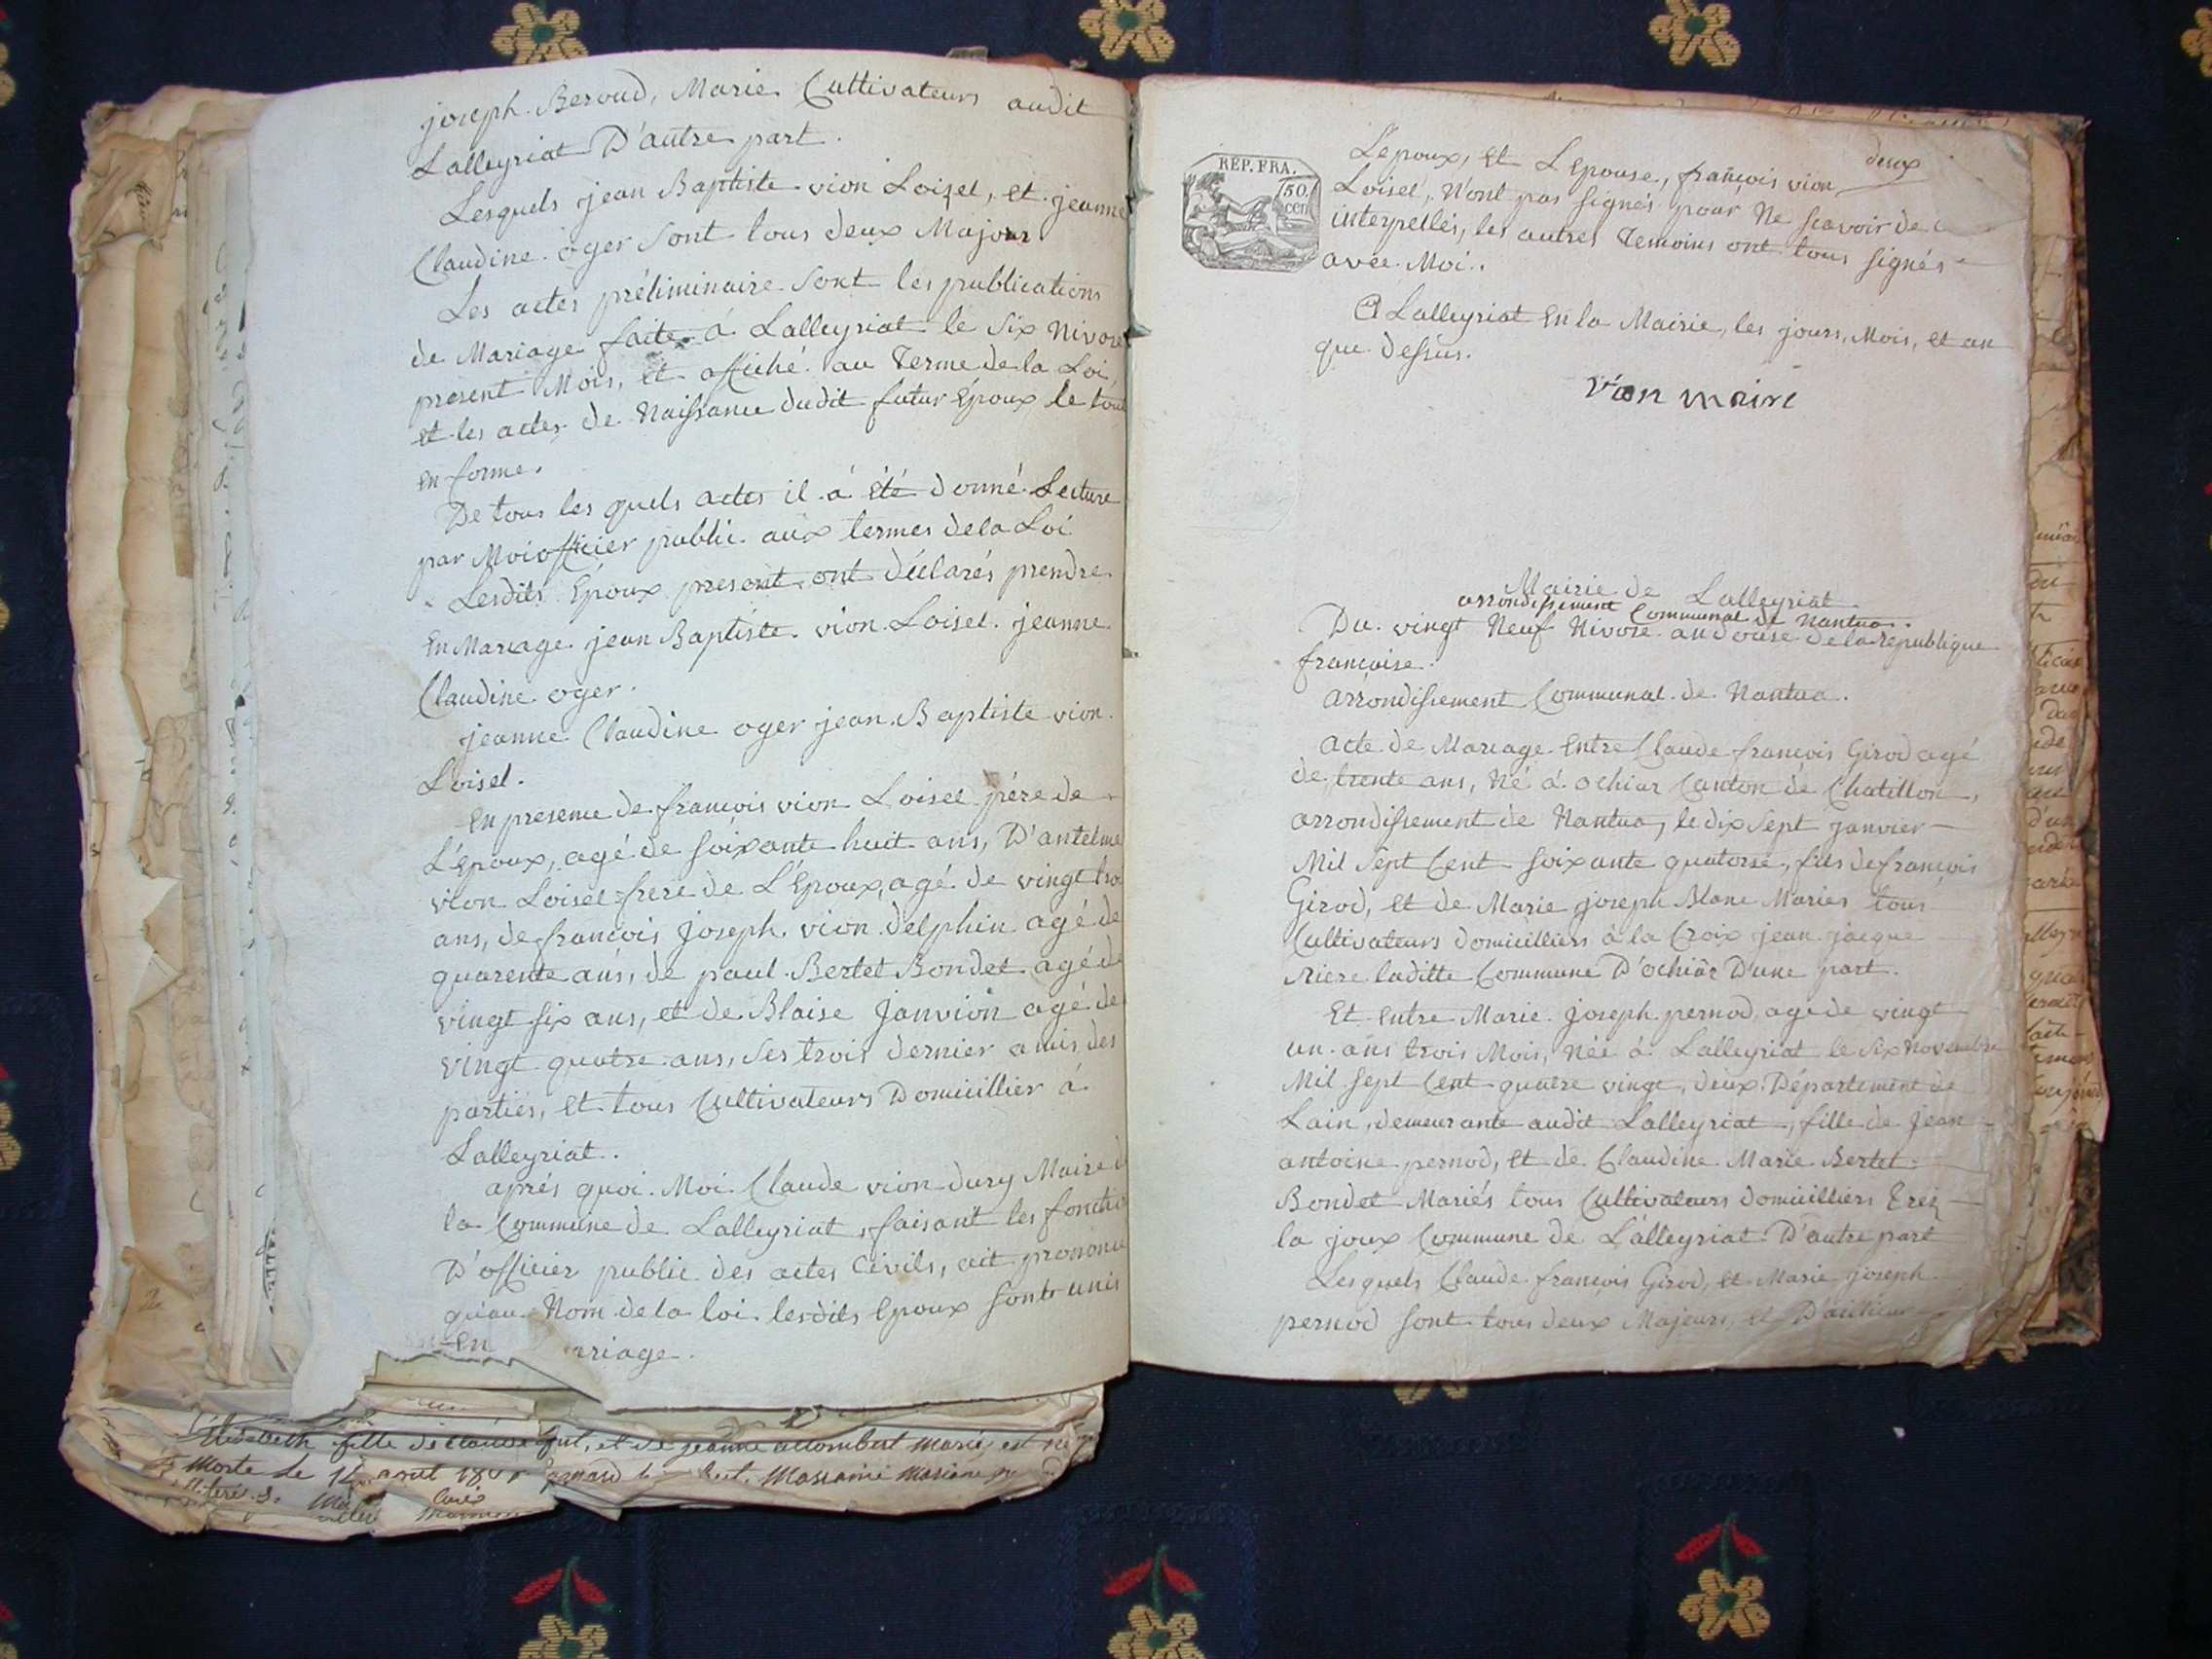 joseph Beroud, Mariés Cultivateurs audit
Lalleyriat D'autre part.
Lesquels jean Baptiste vion Loisel, et jeanne
Claudine oger Sont tous deux Majour
Les actes préliminaire Sont les publications
de Mariage faite à Lalleyriat le Six Nivose
present Mois, et affiché au Terme de la Loi,
et les actes de Naissance dudit futur Époux le tout
en forme.
De tous les quels actes il à été donné Lecture
par Moi officier public aux termes de la Loi
Lesdits Époux present ont déclarés prendre
En Mariage jean Baptiste vion Loisel jeanne
Claudine oger.
jeanne Claudine oger jean Baptiste vion
Loisel.
En presence de francois vion Loisel père de
L'Epoux, agé de soixante huit ans, D'antelme
vion Loisel frere de L'Epoux, agé de vingt tro
ans, de francois joseph vion delphin agé de
quarente ans, de paul Bertet Bondet agé de
vingt six ans, et de Blaise Janvion agé de
vingt quatre ans, Ses trois dernier amis des
parties, et tous Cultivateurs Domicillier à
Lalleyriat.
aprés quoi Moi Claude vion dury Maire d
la Commune de Lalleyriat, faisant les fonctio
D'officier public des actes Civils, ait prononcé
qu'au Nom de la loi lesdits Epoux sont unis
En riage.
Elisabeth fille de claude et de jeanne allombert marié, est
Morte le 14 aout
deux
REP. FRA.
50
cen
L'epoux, et L'Epouse, francois vion
Loisel, N'ont pas signés pour Ne scavoir de
interpellés, les autres Temoins ont tous signés
avec Moi.
A Lalleyriat En la Mairie, les jours, Mois, et an
que dessus.
Vion maire
Mairie de Lalleyriat
arrondissement Communal de Nantua.
Du vingt Neuf Nivose an douse de la republique
francoise.
arrondissement Communal de Nantua.
acte de Mariage Entre Claude francois Girod agé
de trente ans, Né à ochiar Canton de Chatillon,
arrondissement de Nantua, le dix Sept janvier
Mil Sept Cent soixante quatorse, fils de francois
Girod, et de Marie joseph Blanc Mariés tous
Cultivateurs domicilliers à la Croix jean jacque
riere laditte Commune D'ochiar D'une part.
Et Entre Marie joseph pernod agé de vingt
un ans trois Mois, Née à Lalleyriat le Six Novembre
Mil Sept Cent quatre vingt, deux Département de
Lain, demeurante audit Lalleyriat, fille de jean
antoine pernod, et de Claudine Marie Bertet
Bondet Mariés tous Cultivateurs domicilliers
la joux Commune de Lalleyriat D'autre part
Lesquels Claude francois Girod, et Marie joseph
pernod sont tous deux Majeurs, et D'ailleur